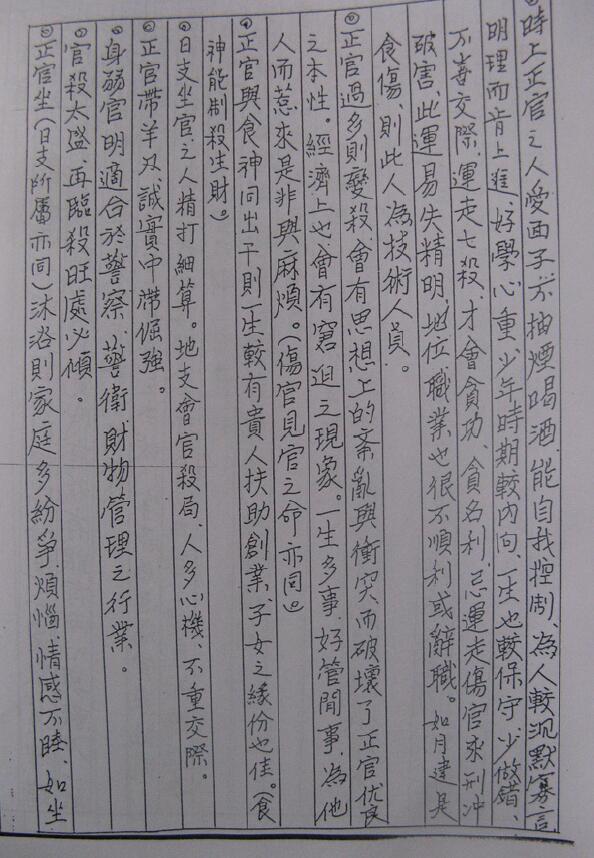 時上正官之人愛面子,不抽煙喝酒,能自我控制、為人較沉默寡言
明理而肯上進、好學心重,少年時期較內向,一生也較保守少做錯、
不喜交際,運走七殺,才會貪功、貪名利,忌運走傷官來刑冲
破害,此運易失精明,地位職業也很不順利或辭職。如月建是
食傷、則此人為技術人員。
正官過多則變殺會有思想上的紊亂與衝突,而破壞了正官優良
之本性。經濟上也會有窘迫之現象。一生多事,好管閒事,為他
人而惹來是非與麻煩。(傷官見官之命亦同)
正官與食神同出干則一生較有貴人扶助創業、子女之緣份也佳。(食
神能制殺生財。)
日支坐官之人精打細算。地支會官殺局、人多心機、不重交際。
正官帶羊刃,誠實中帶倔強。
身弱官明適合於警察、警衛、財物管理之行業。
官殺太盛,再臨殺旺處必傾。
正官坐(日支所屬亦同)沐浴則家庭多紛爭、煩惱、情感不睦、如坐